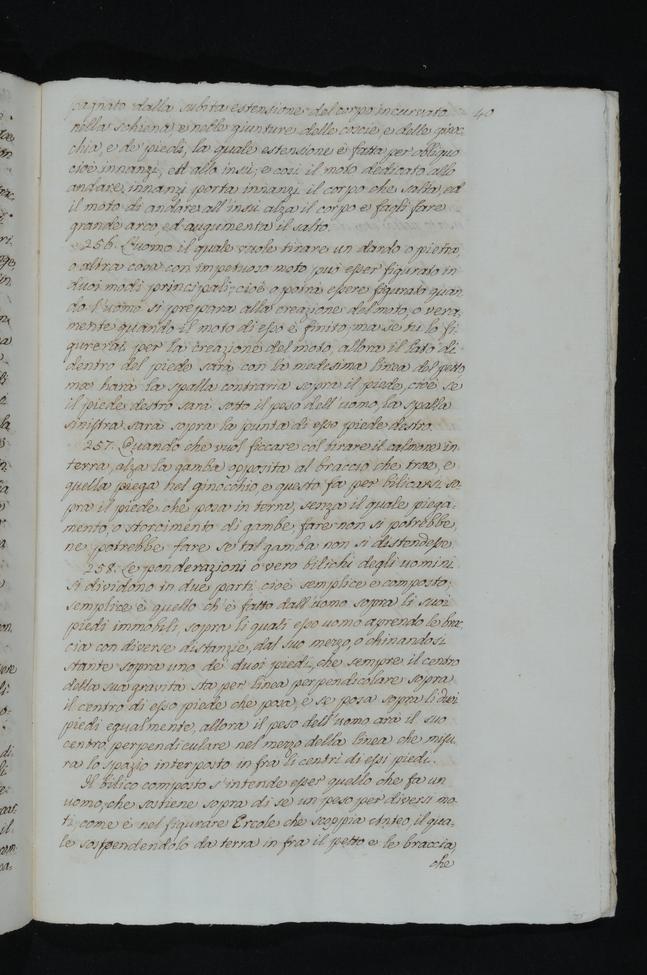 pagnato dalla subita estensione del corpo incurvato 40
nella schiena, e nelle giunture delle coscie, e delle ginoc-
chia, e de' piedi, la quale estensione è fatta per obliquo
cioè innanzi, et allo insù, e così il moto dedicato allo
andare innanzi porta innanzi il corpo che salta, ed
il moto di andare all'insù alza il corpo e fagli fare
grande arco, ed augumenta il salto.
256. L'uomo il quale vuole tirare un dardo o pietra,
o altra cosa con impetuoso moto può esser figurato in
duoi modi principali; cioè o potrà essere figurato quan-
do l'uomo si prepara alla creazione del moto, o vera-
mente quando il moto di esso è finito, ma se tu lo fi-
gurerai per la creazione del moto, allora il lato di
dentro del piede sarà con la medesima linea del petto
ma harà la spalla contraria sopra il piede, cioè se
il piede destro sarà sotto il peso dell'uomo, la spalla
sinistra sara sopra la punta di esso piede destro.
257. Quando che vuol ficcare col tirare il calmone in
terra, alza la gamba opposita al braccio che trae, e
quella piega nel ginocchio, e questo fa per bilicarsi so-
pra il piede che posa in terra, senza il quale piega-
mento, o storcimento di gambe, fare non si potrebbe,
ne potrebbe fare se tal gamba non si distendesse.
258. Le ponderazioni o vero bilichi degli uomini
si dividono in due parti, cioè semplice e composto;
semplice è quello ch'è fatto dall'uomo sopra li suoi
piedi immobili, sopra li quali esso uomo aprendo le brac-
cia con diverse distanzie, dal suo mezzo, o chinandosi
stante sopra uno de' duoi piedi, che sempre il centro
della sua gravità sta per linea perpendicolare sopra
il centro di esso piede che posa, e se posa sopra li duoi
piedi equalmente, allora il peso dell'uomo arà il suo
centro perpendiculare nel mezzo della linea che misu-
ra lo spazio interposto in fra li centri di essi piedi.
Il bilico composto s'intende esser quello che fa un
uomo, che sostiene sopra di se un peso per diversi mo-
ti, come è nel figurare Ercole che scoppia Anteo il qua-
le sospendendolo da terra in fra il petto e le braccia,
che